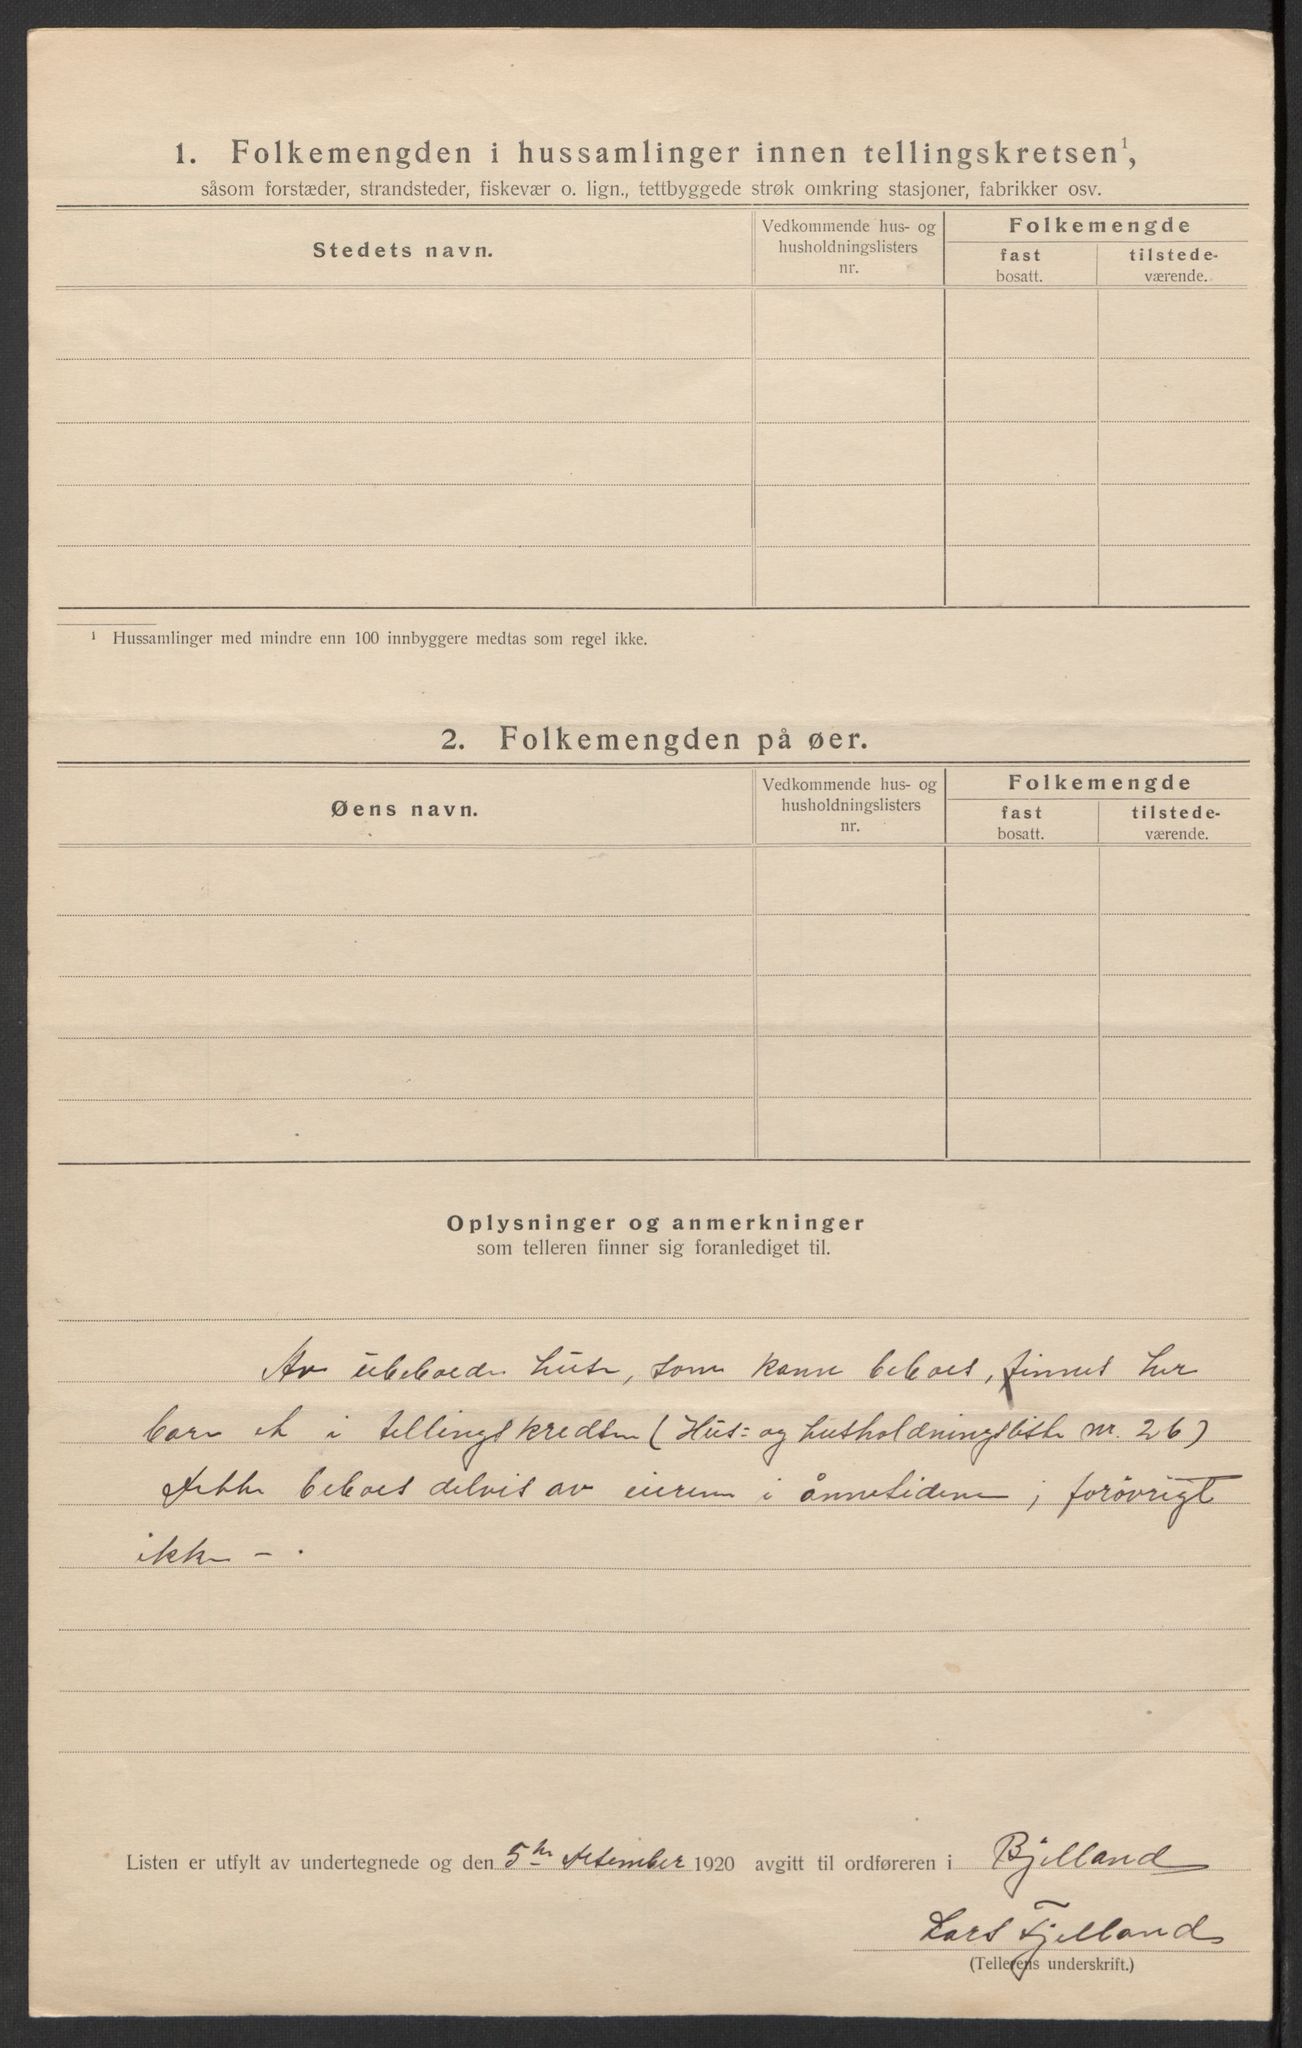 1. Folkemengden i hussamlinger innen tellingskretsen¹,
såsom forstæder, strandsteder, fiskevær o. lign., tettbyggede strøk omkring stasjoner, fabrikker osv.
Stedets navn.
Vedkommende hus- og
husholdningslisters
nr.
Folkemengde
fast
bosatt.
tilstede-
værende.
¹ Hussamlinger med mindre enn 100 innbyggere medtas som regel ikke.
2. Folkemengden på øer.
Øens navn.
Vedkommende hus- og
husholdningslisters
nr.
Folkemengde
fast
bosatt.
tilstede-
værende.
Oplysninger og anmerkninger
som telleren finner sig foranlediget til.
Av ubeboede huse, som kann beboes, finnes her
bare et i tellingskredsen (Hus- og husholdningsliste nr. 26)
Dette beboes delvis av eieren i ånnetidene; forøvrigt
ikke - .
Listen er utfylt av undertegnede og den 5te desember 1920 avgitt til ordføreren i Bjelland
Lars Fjelland
(Tellerens underskrift.)